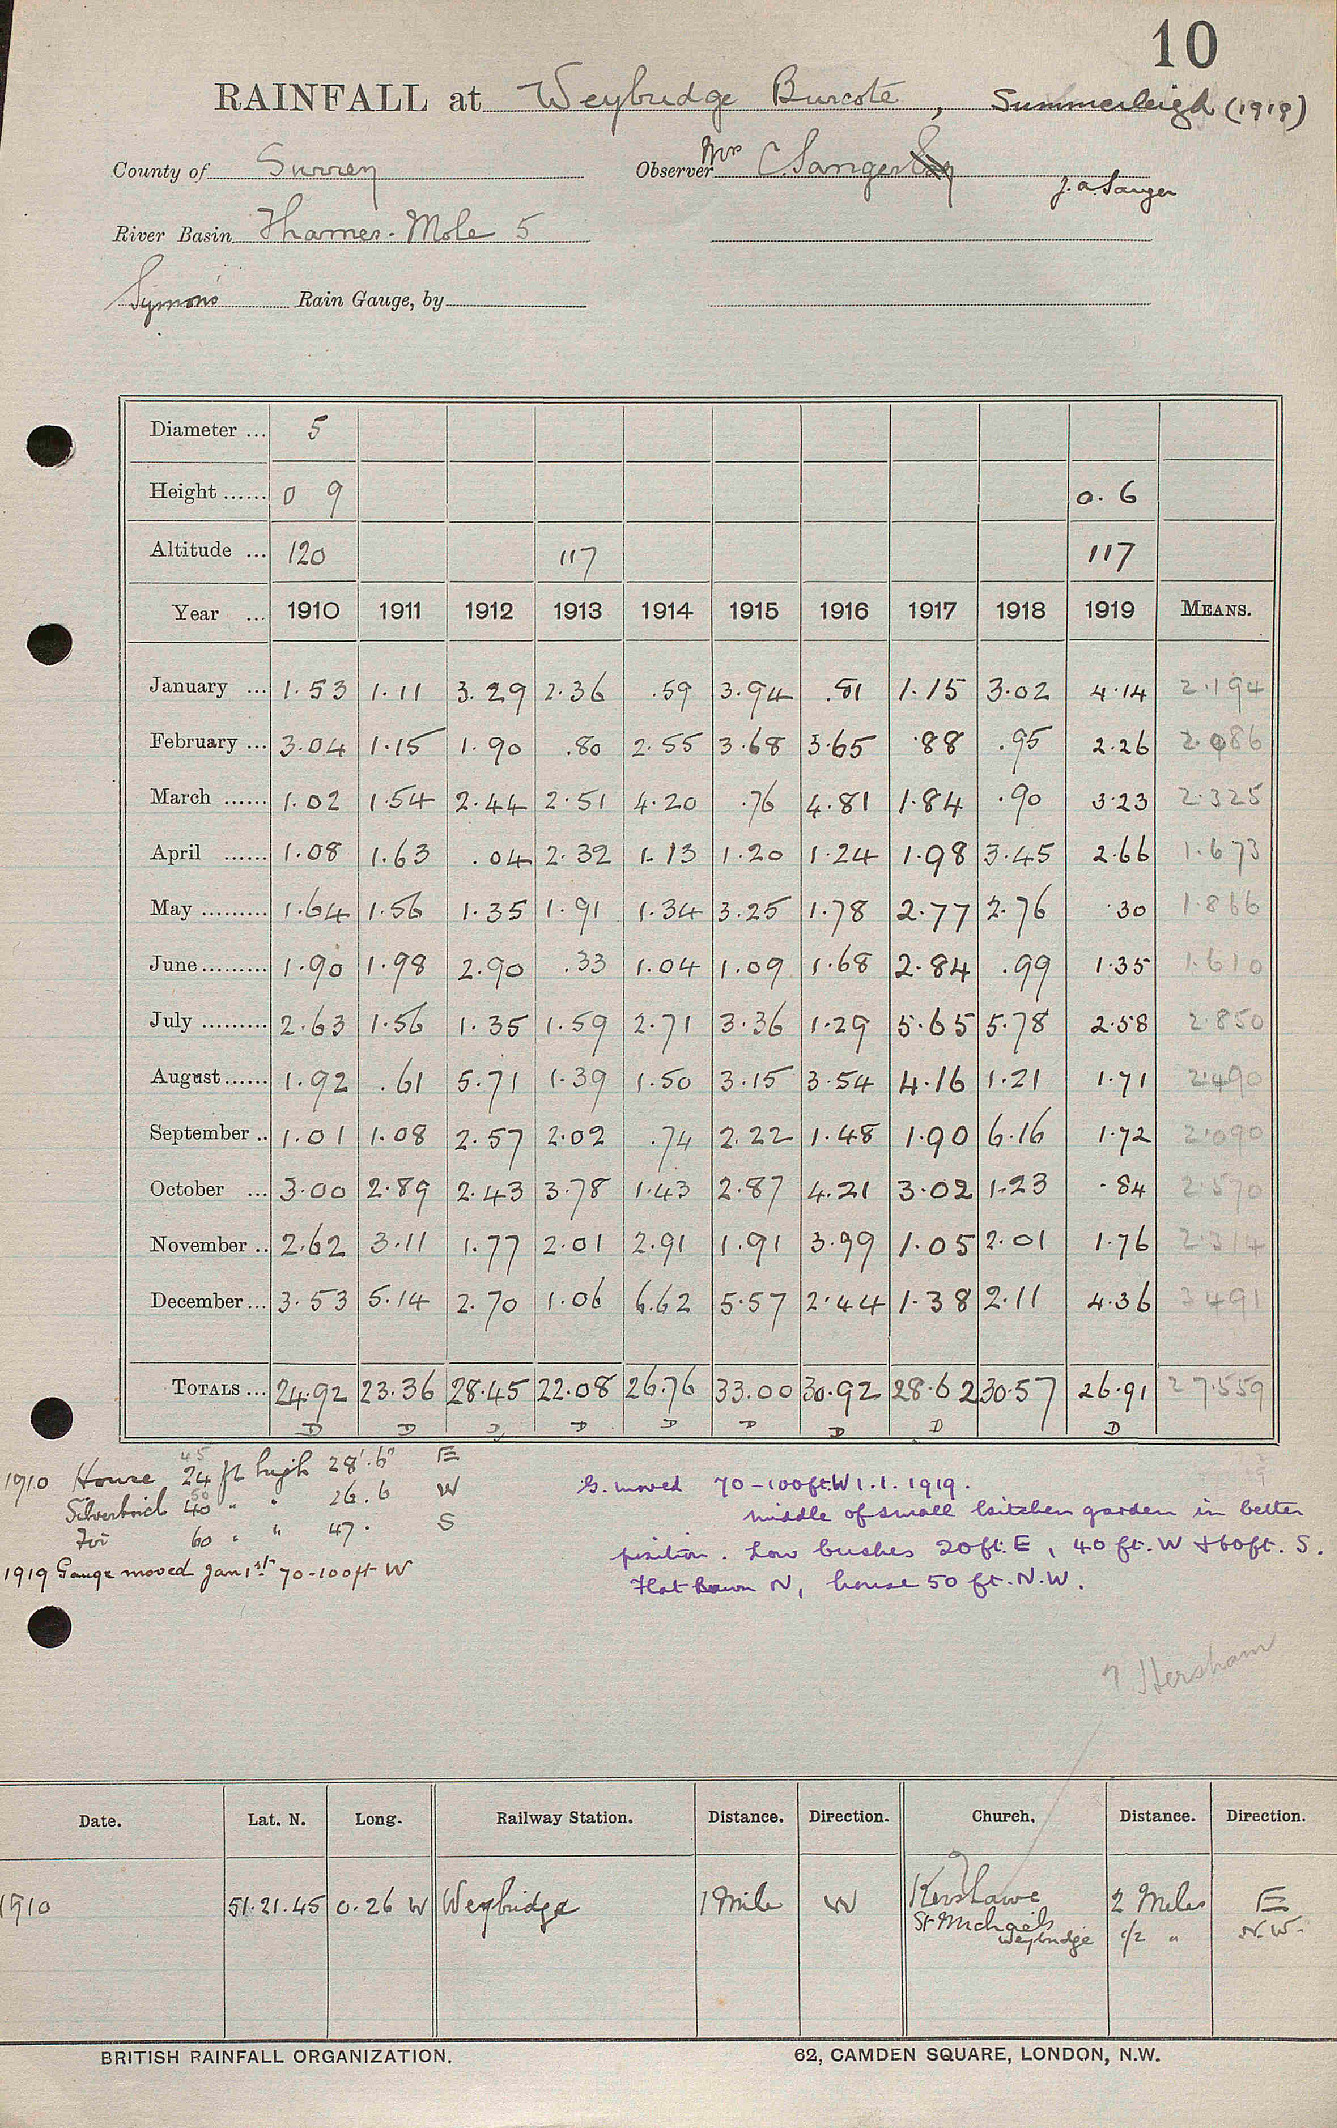 10
RAINFALL at Weybridge Burcote, Summerleigh (1919)
County of Surrey Observer Mrs C. Sanger
J. A. Sanger
River Basin Thames - Mole 5
Symons Rain Gauge, by
Diameter ... 5
Height ...... 0 9 0.6
Altitude ... 120 117 117
Year ... 1910 1911 1912 1913 1914 1915 1916 1917 1918 1919 MEANS.
January ... 1.53 1.11 3.29 2.36 .59 3.94 .81 1.15 3.02 4.14 2.194
February ... 3.04 1.15 1.90 .80 2.55 3.68 3.65 .88 .95 2.26 2.086
March ...... 1.02 1.54 2.44 2.51 4.20 .76 4.81 1.84 .90 3.23 2.325
April ...... 1.08 1.63 .04 2.32 1.13 1.20 1.24 1.98 3.45 2.66 1.673
May ......... 1.64 1.56 1.35 1.91 1.34 3.25 1.78 2.77 2.76 .30 1.866
June ......... 1.90 1.98 2.90 .33 1.04 1.09 1.68 2.84 .99 1.35 1.610
July ......... 2.63 1.56 1.35 1.59 2.71 3.36 1.29 5.65 5.78 2.58 2.850
August ...... 1.92 .61 5.71 1.39 1.50 3.15 3.54 4.16 1.21 1.71 2.490
September .. 1.01 1.08 2.57 2.02 .74 2.22 1.48 1.90 6.16 1.72 2.090
October ... 3.00 2.89 2.43 3.78 1.43 2.87 4.21 3.02 1.23 .84 2.570
November .. 2.62 3.11 1.77 2.01 2.91 1.91 3.99 1.05 2.01 1.76 2.314
December ... 3.53 5.14 2.70 1.06 6.62 5.57 2.44 1.38 2.11 4.36 3.491
TOTALS ... 24.92 23.36 28.45 22.08 26.76 33.00 30.92 28.62 30.57 26.91 27.559
D D D D D D D D D
45
1910 House 24 ft high 28'.6" E
50
Silverbirch 40 " " 26.6 W
Fir 60 " " 47. S
1919 Gauge moved Jan 1st 70-100 ft W
G. moved 70-100 ft W 1.1.1919.
middle of small kitchen garden in better
position. Low bushes 20 ft. E, 40 ft. W & 60 ft. S.
Flat N, house 50 ft. N.W.
? Hersham
Date. Lat. N. Long. Railway Station. Distance. Direction. Church. Distance. Direction.
1910 51.21.45 0.26 W Weybridge 1 Mile W Kershawe 2 Miles E
St Michaels Weybridge 1/2 " N.W.
BRITISH RAINFALL ORGANIZATION. 62, CAMDEN SQUARE, LONDON, N.W.